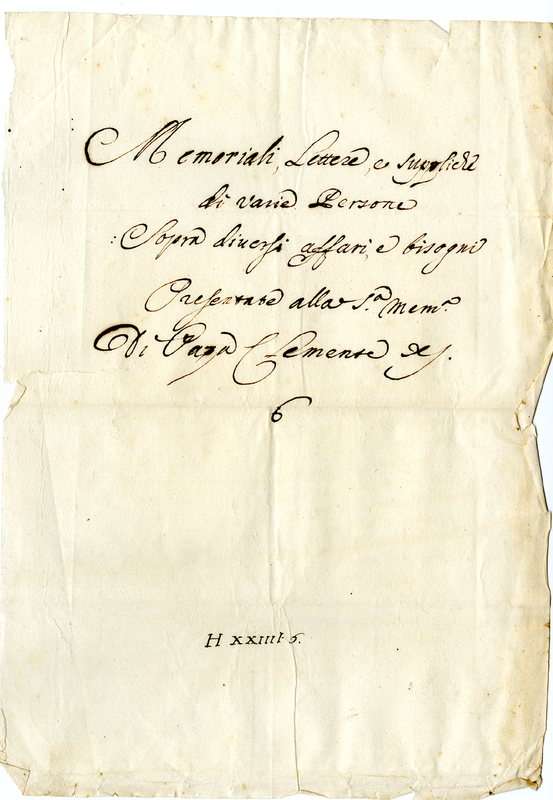 Memoriali, Lettere, e suppliche
di varie Persone
Sopra diversi affari, e bisogni
Presentate alla S.ª Mem.ª
Di Papa Clemente XI.
6
H XXIIII. 6.